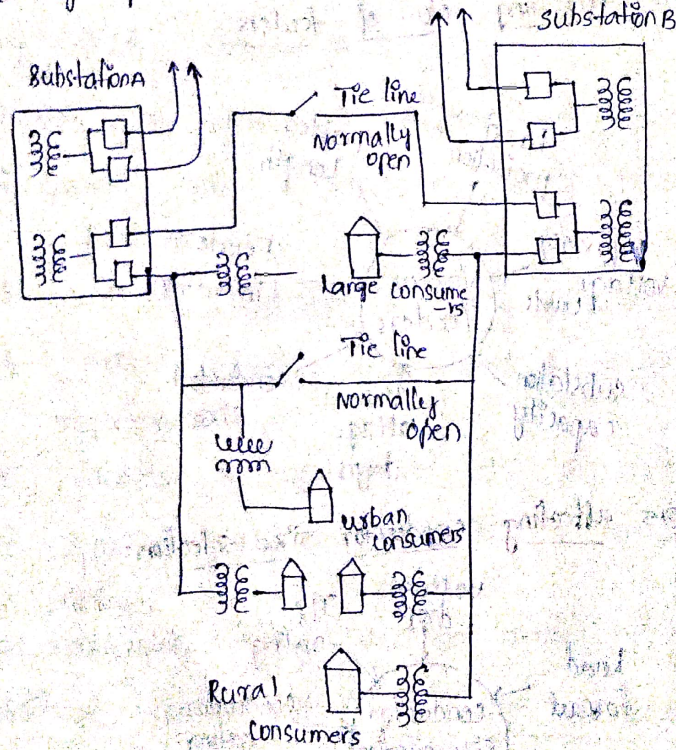 Substation B
Substation A
Tie line
Normally
open
Large consume
-rs
Tie line
Normally
open
urban
consumers
Rural
consumers